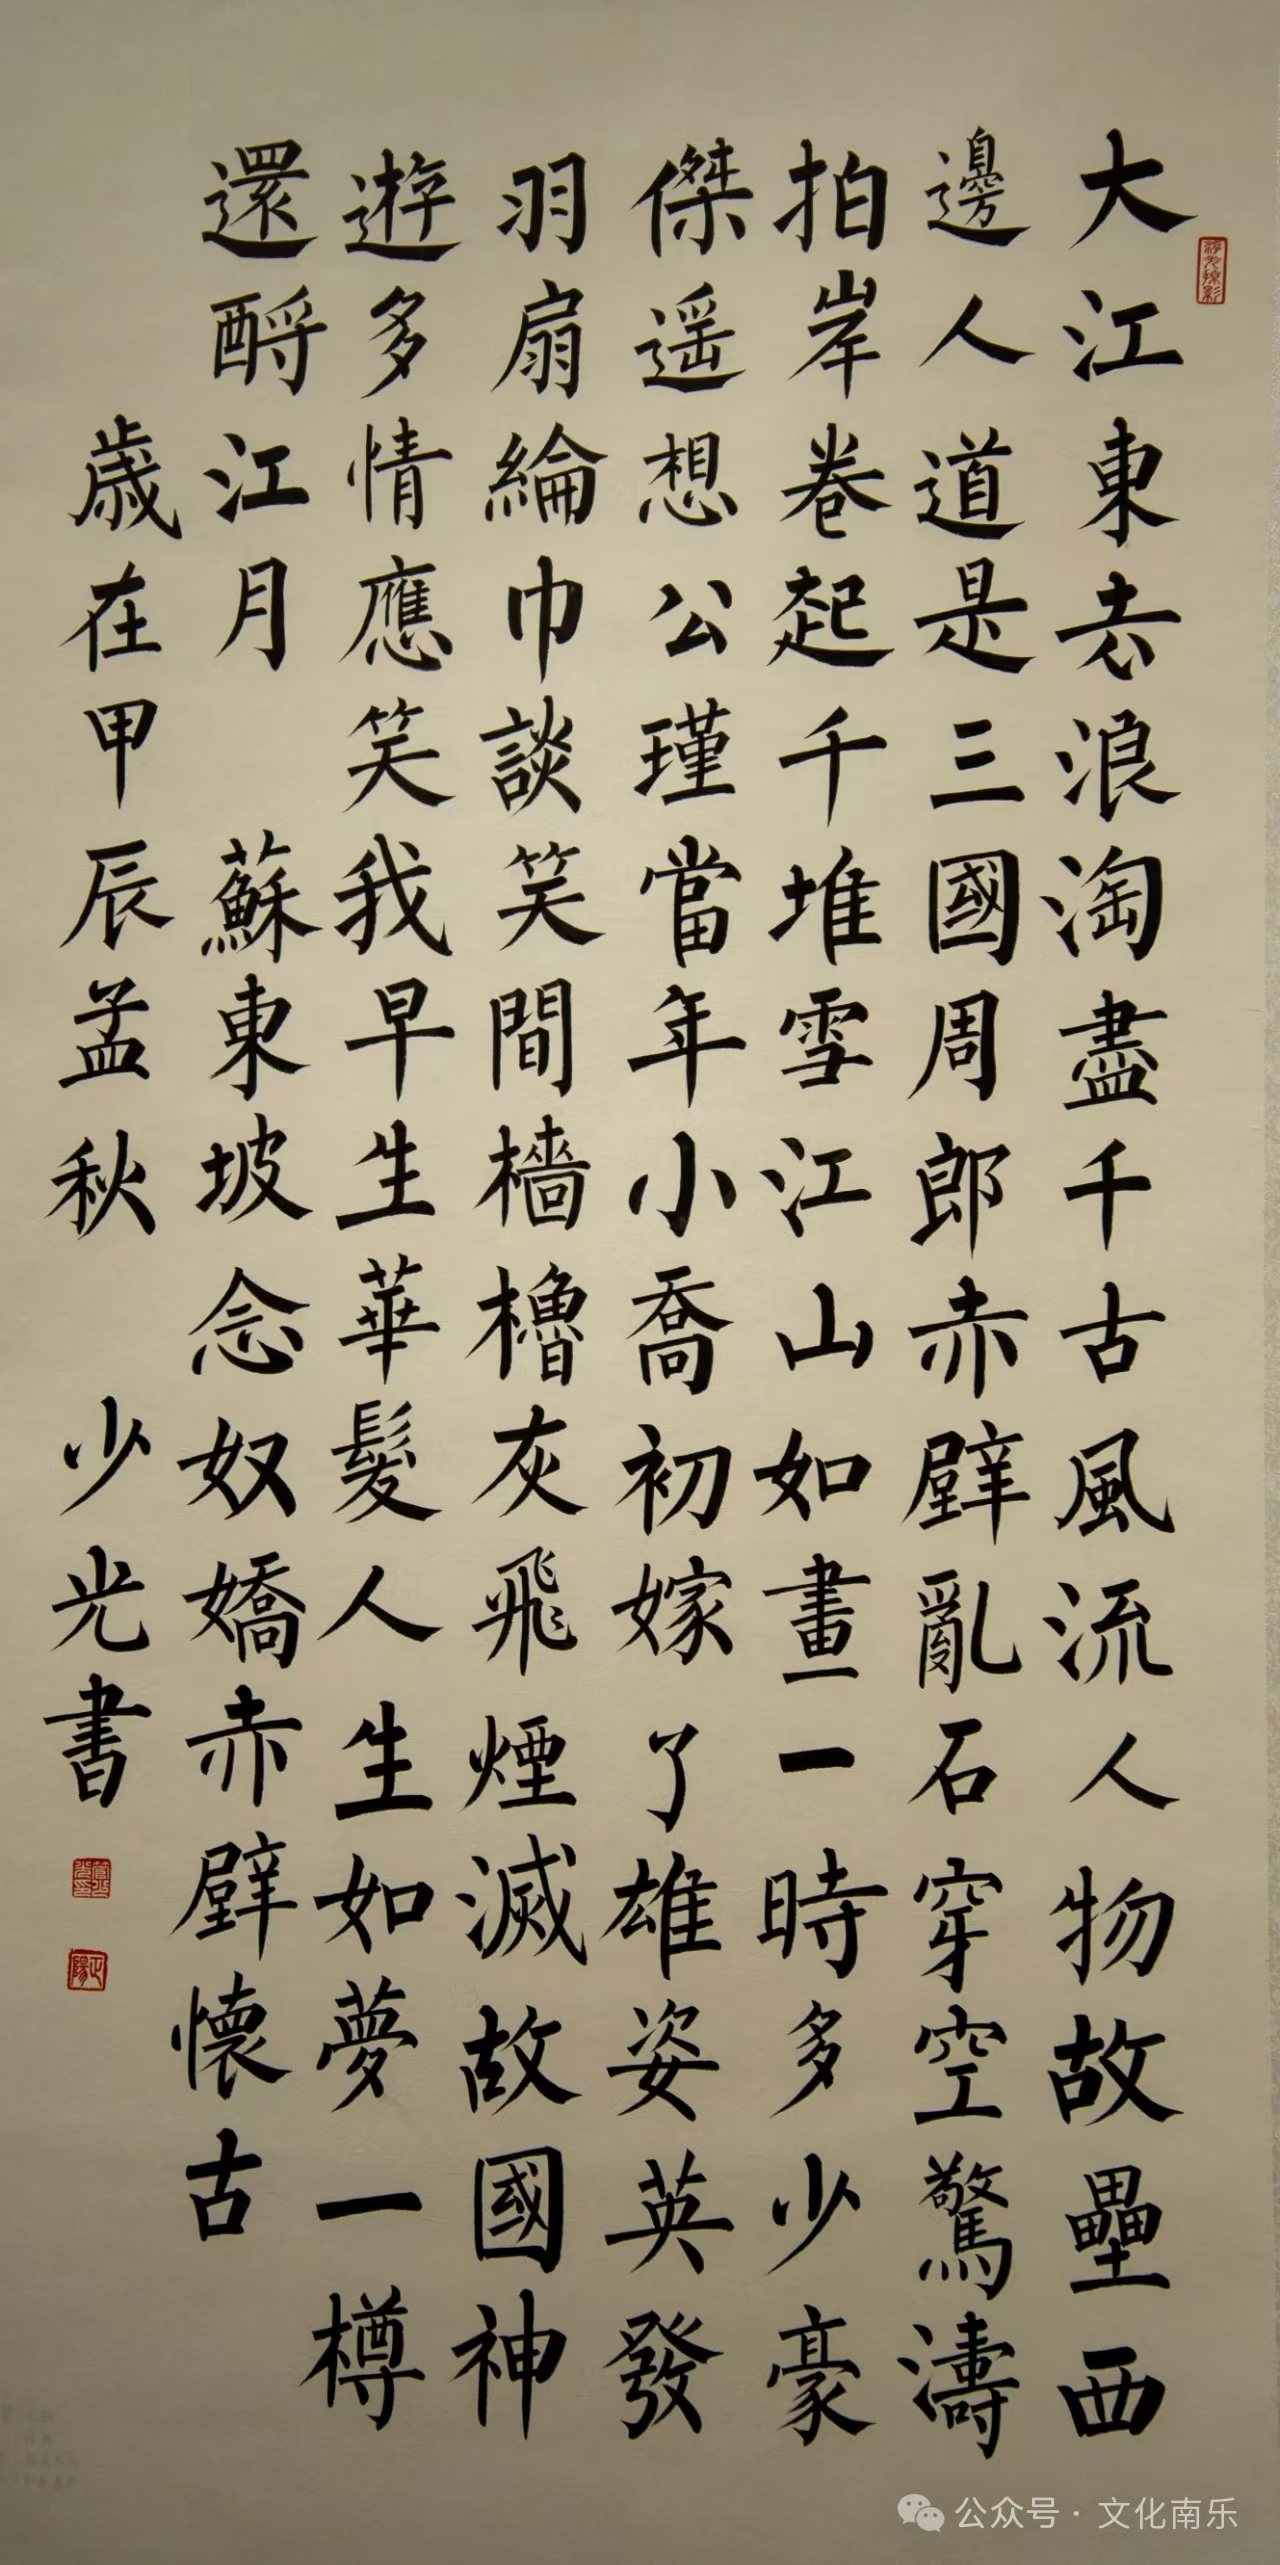 大江東去浪淘盡千古風流人物故壘西
邊人道是三國周郎赤壁亂石穿空驚濤
拍岸卷起千堆雪江山如畫一時多少豪
傑遥想公瑾當年小喬初嫁了雄姿英發
羽扇綸巾談笑間檣櫓灰飛煙滅故國神
遊多情應笑我早生華髮人生如夢一樽
還酹江月 蘇東坡念奴嬌赤壁懷古
歲在甲辰孟秋 少光書
公众号·文化南乐